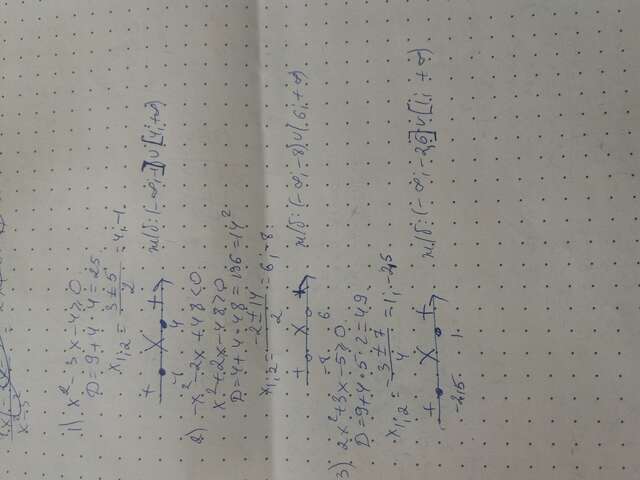 1) x² - 3x - 4 ≥ 0
D = 9 + 4 · 4 = 25
x₁,₂ = (3 ± 5)/2 = 4; -1.
+ X +
-1 4
(-∞; -1] ∪ [4; +∞)
2) -x² - 2x + 48 < 0
x² + 2x - 48 > 0
D = 4 + 4 · 48 = 196 = 14²
x₁,₂ = (-2 ± 14)/2 = 6; -8.
+ X +
-8 6
(-∞; -8) ∪ (6; +∞)
3) 2x² + 3x - 5 ≥ 0
D = 9 + 4 · 5 · 2 = 49
x₁,₂ = (-3 ± 7)/4 = 1; -2,5
+ X +
-2,5 1
(-∞; -2,5] ∪ [1; +∞)